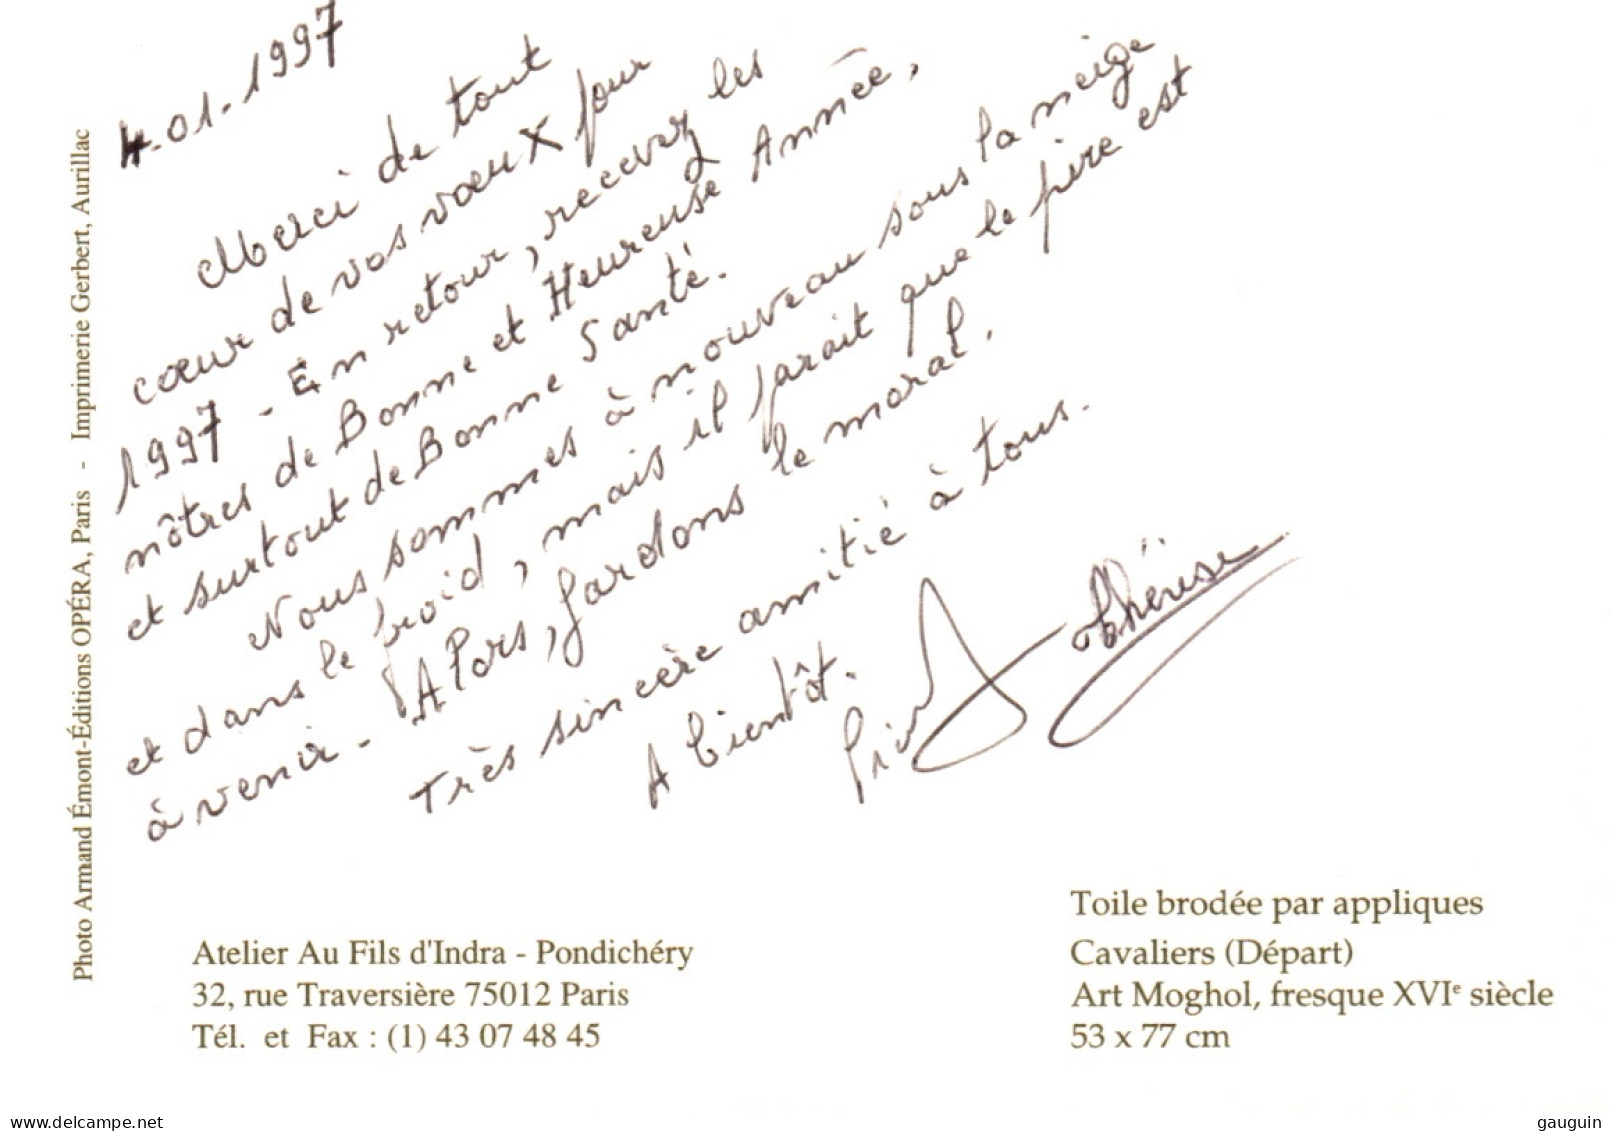 4.01.1997
Merci de tout
cœur de vos vœux pour
1997 - En retour, recevez les
nôtres de Bonne et Heureuse Année,
et surtout de Bonne Santé.
Nous sommes à nouveau sous la neige
et dans le froid, mais il parait que le pire est
à venir - Alors, gardons le moral.
Très sincère amitié à tous.
A bientôt.
Thérèse
Photo Armand Émont-Éditions OPÉRA, Paris - Imprimerie Gerbert, Aurillac
Atelier Au Fils d'Indra - Pondichéry
32, rue Traversière 75012 Paris
Tél. et Fax : (1) 43 07 48 45
Toile brodée par appliques
Cavaliers (Départ)
Art Moghol, fresque XVIe siècle
53 x 77 cm
delcampe.net
gauguin